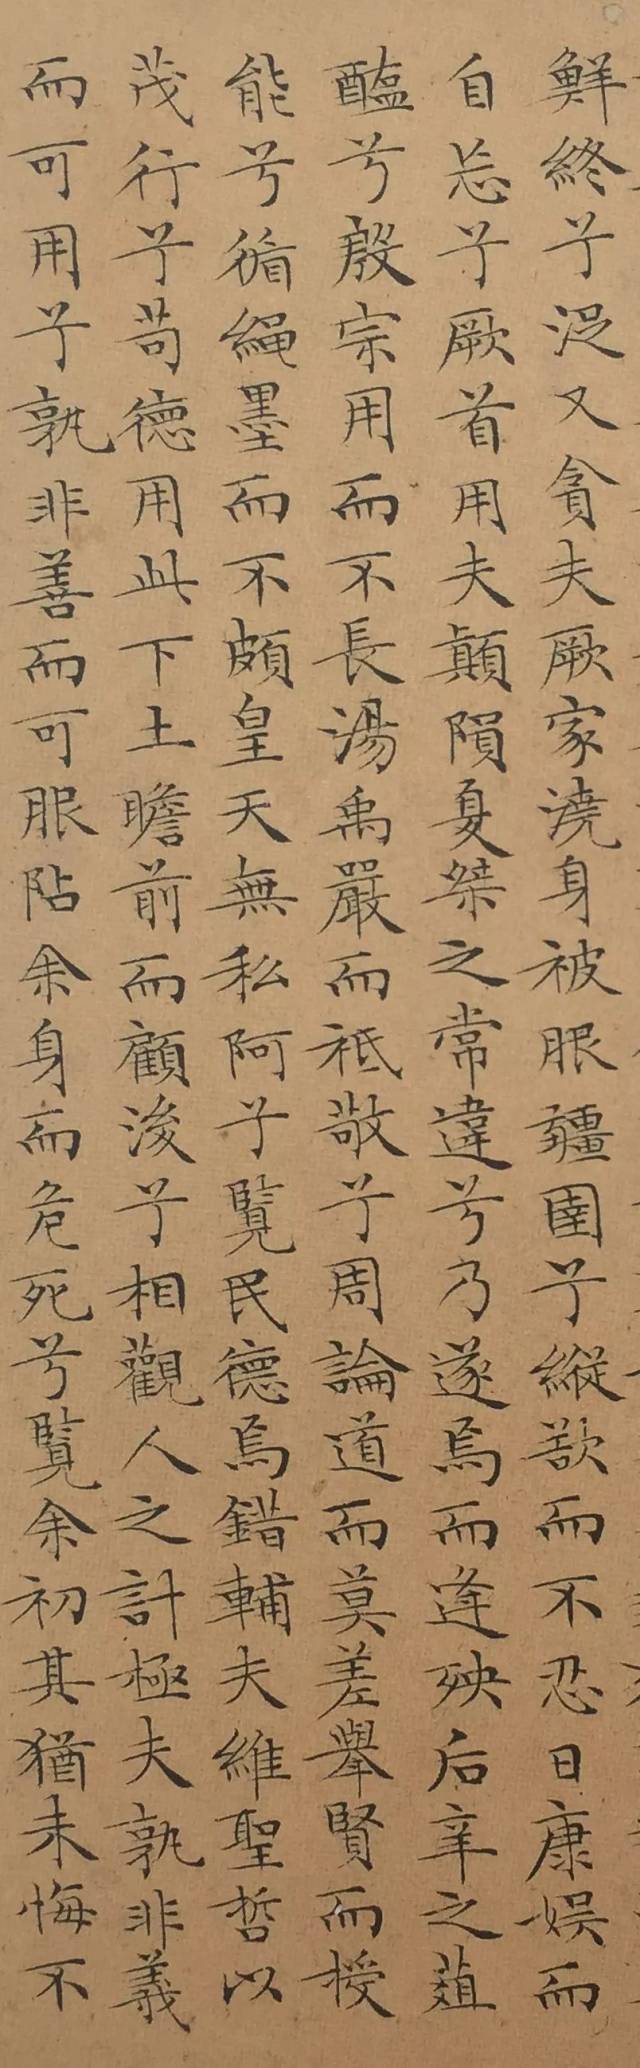 鮮終兮浞又貪夫厥家澆身被服彊圉兮縱欲而不忍日康娛而
自忘兮厥首用夫顛隕夏桀之常違兮乃遂焉而逢殃后辛之菹
醢兮殷宗用而不長湯禹嚴而祗敬兮周論道而莫差舉賢而授
能兮循繩墨而不頗皇天無私阿兮覽民德焉錯輔夫維聖哲以
茂行兮苟德用此下土瞻前而顧後兮相觀人之計極夫孰非義
而可用兮孰非善而可服阽余身而危死兮覽余初其猶未悔不